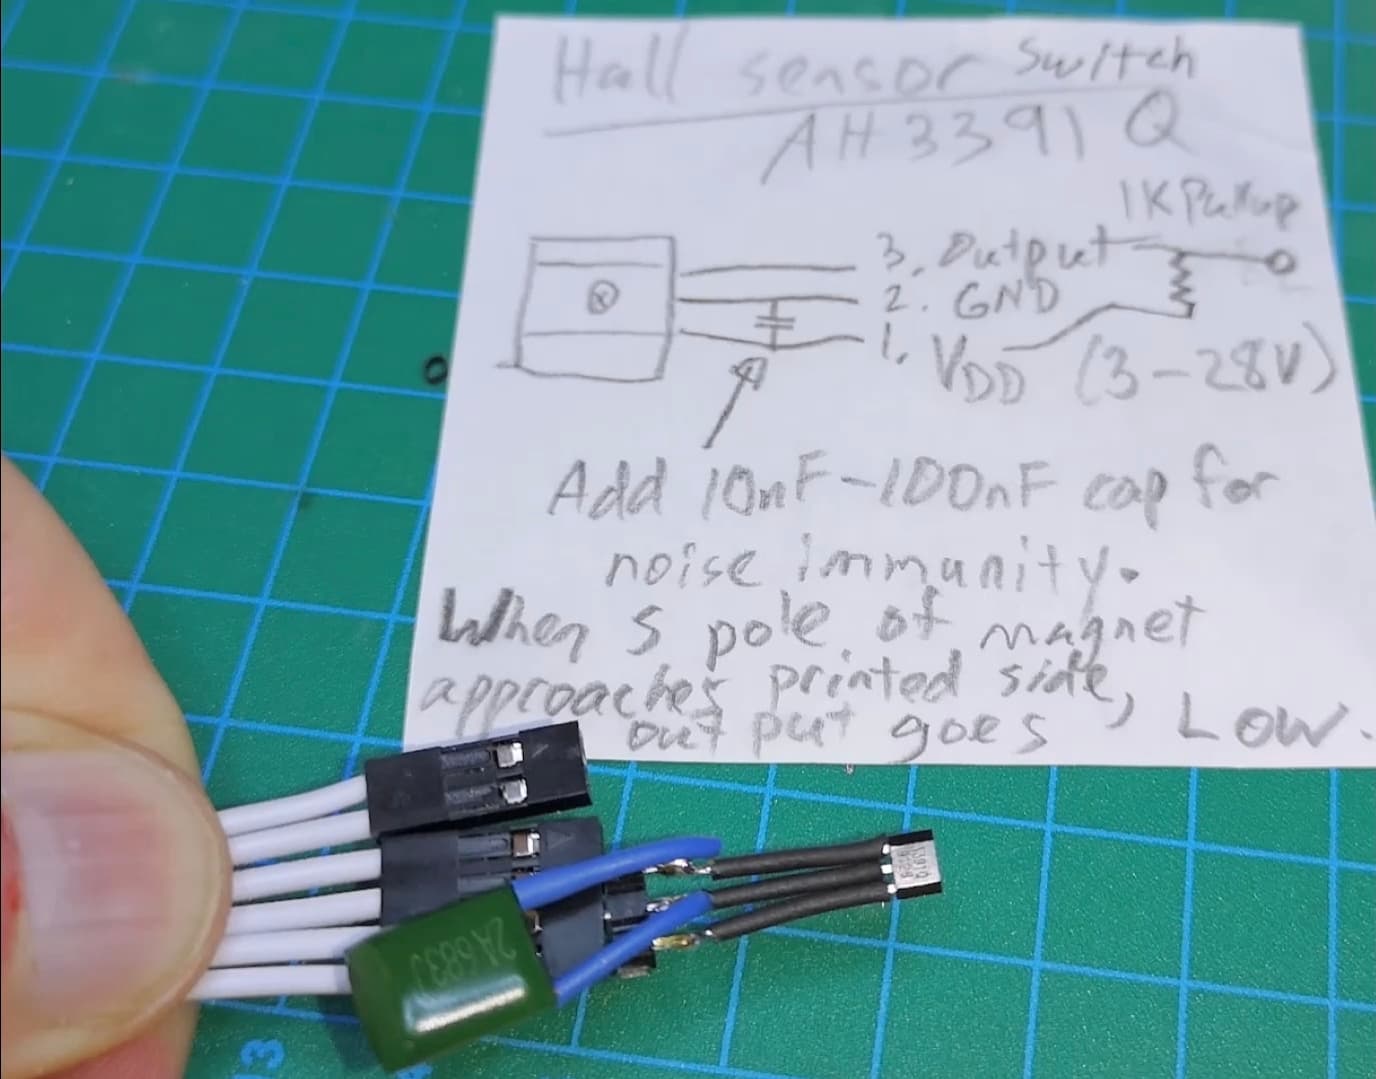 Hall sensor Switch
AH3391Q
1K Pullup
3. Output
2. GND
1. VDD (3-28V)
Add 10nF-100nF cap for
noise immunity.
When S pole of magnet
approaches printed side,
output goes LOW.
2A683J
3